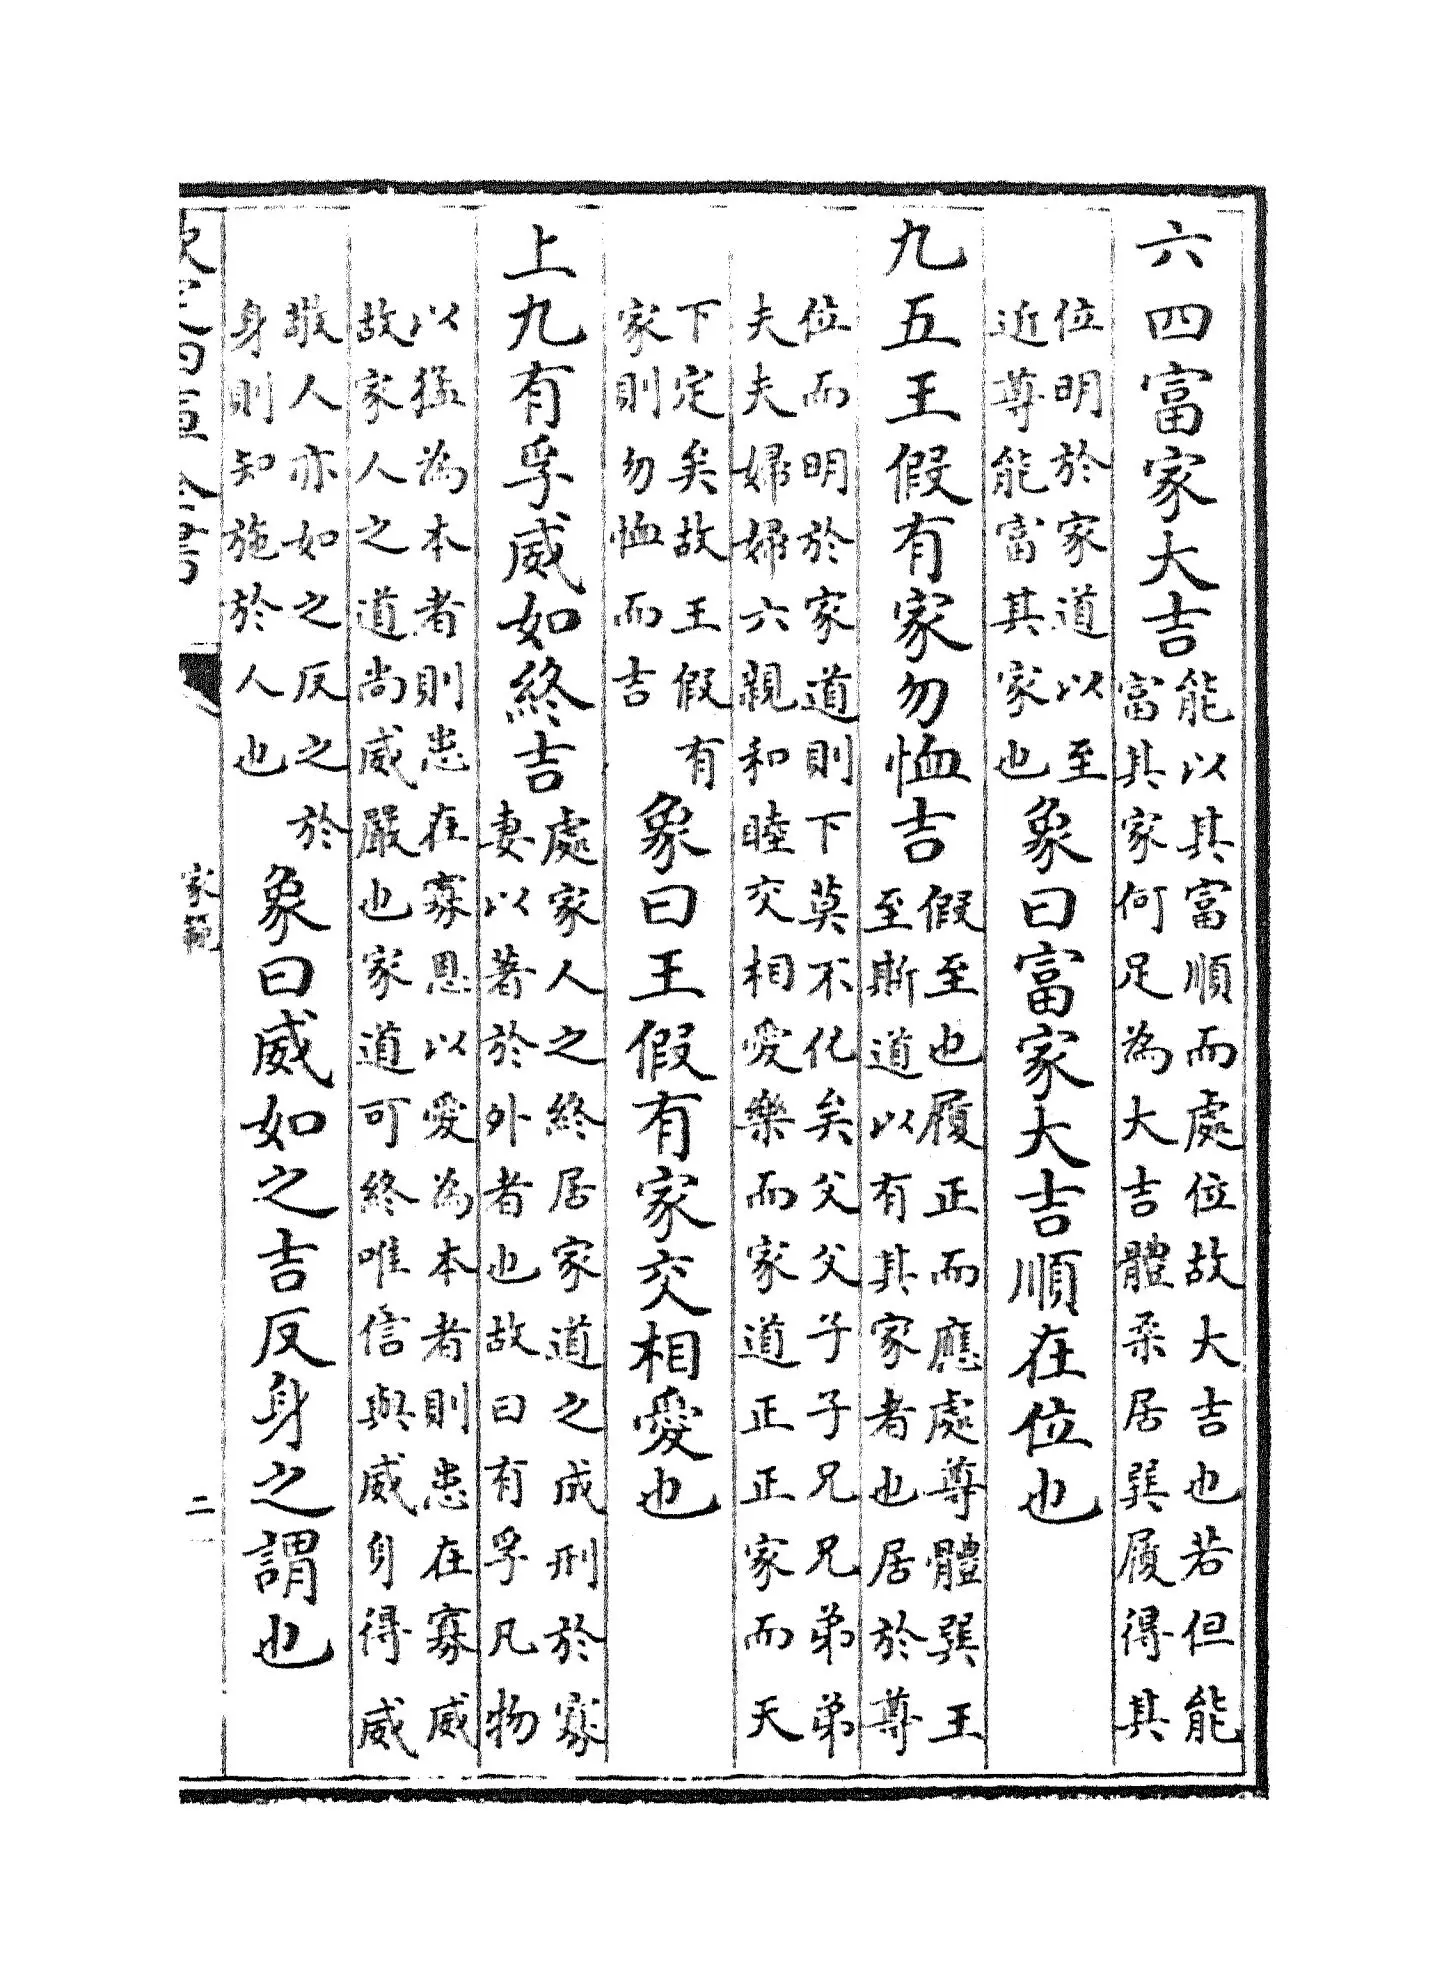 六四富家大吉
能以其富順而處位故大吉也若但能
富其家何足為大吉體柔居巽履得其
位明於家道以至
近尊能富其家也
象曰富家大吉順在位也
九五王假有家勿恤吉
假至也履正而應處尊體巽王
至斯道以有其家者也居於尊
位而明於家道則下莫不化矣父父子子兄兄弟弟
夫夫婦婦六親和睦交相愛樂而家道正正家而天
下定矣故王假有
家則勿恤而吉
象曰王假有家交相愛也
上九有孚威如終吉
處家人之終居家道之成刑於寡
妻以著於外者也故曰有孚凡物
以猛為本者則患在寡恩以愛為本者則患在寡威
故家人之道尚威嚴也家道可終唯信與威身得威
敬人亦如之反之於
身則知施於人也
象曰威如之吉反身之謂也
欽定四庫全書
家範
二